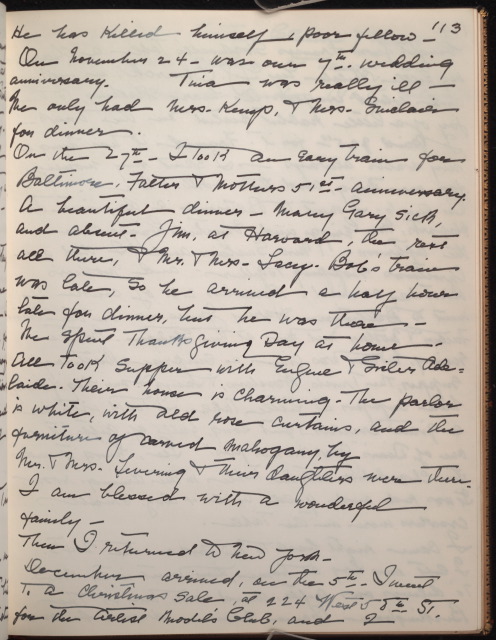 '13
He has killed himself, poor fellow -
On November 24 - was our 7th wedding
anniversary. Tina was really ill -
We only had Mrs. Kemp, & Mrs. Sinclair
for dinner.
On the 27th - I took an early train for
Baltimore, Father & Mothers 51st - anniversary.
A beautiful dinner - Mary Gary sick,
and absent - Jim, at Harvard, the rest
all there, & Mr. & Mrs. Lacy. Bob's train
was late, so he arrived a half hour
late for dinner, but he was there -
We spent Thanksgiving Day at home -
All took supper with Eugene & Sister Ade=
laide. Their house is charming - The parlor
is white, with old rose curtains, and the
furniture of carved mahogany,
Mr. & Mrs. Levering & their daughters were there.
I am blessed with a wonderful
family -
Then I returned to New York -
December arrived, on the 5th - I went
to a Christmas Sale, at 224 West 58th St.
for the Artist Model's Club, and 2